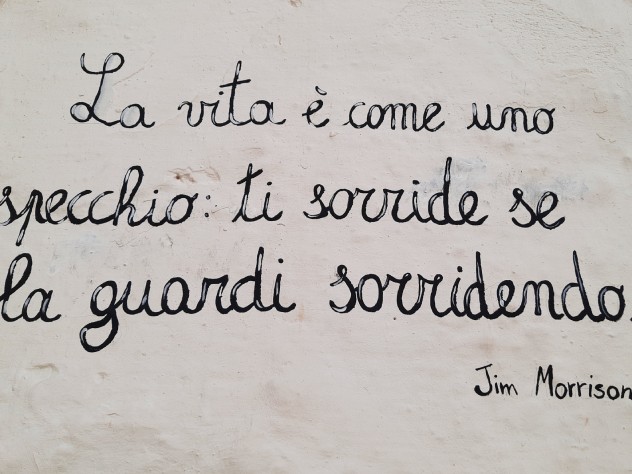 La vita è come uno
specchio: ti sorride se
la guardi sorridendo.
Jim Morrison